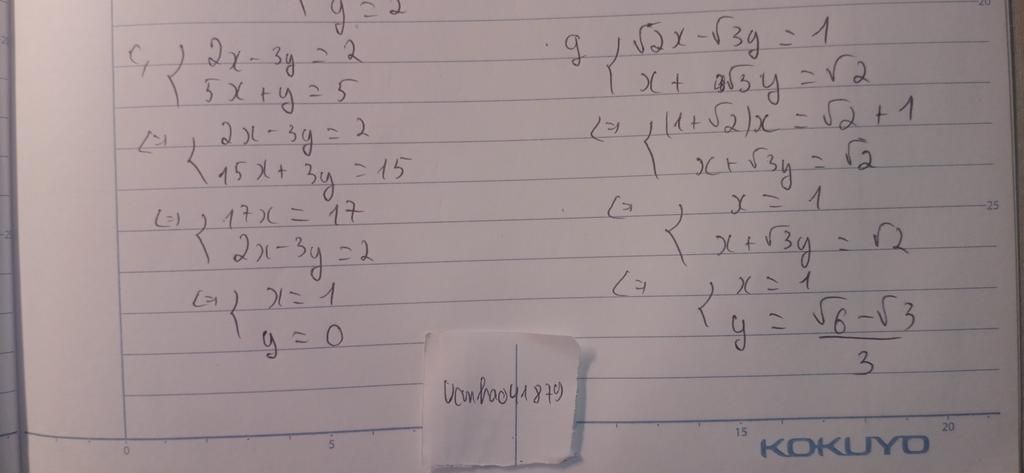 y = 2
c, { 2x - 3y = 2
5x + y = 5
<=> { 2x - 3y = 2
15x + 3y = 15
<=> { 17x = 17
2x - 3y = 2
<=> { x = 1
y = 0
g { √2x - √3y = 1
x + √3y = √2
<=> { (1 + √2)x = √2 + 1
x + √3y = √2
<=> { x = 1
x + √3y = √2
<=> { x = 1
y = (√6 - √3)/3
Vanhao41879
0 5 15 20
20
25
KOKUYO